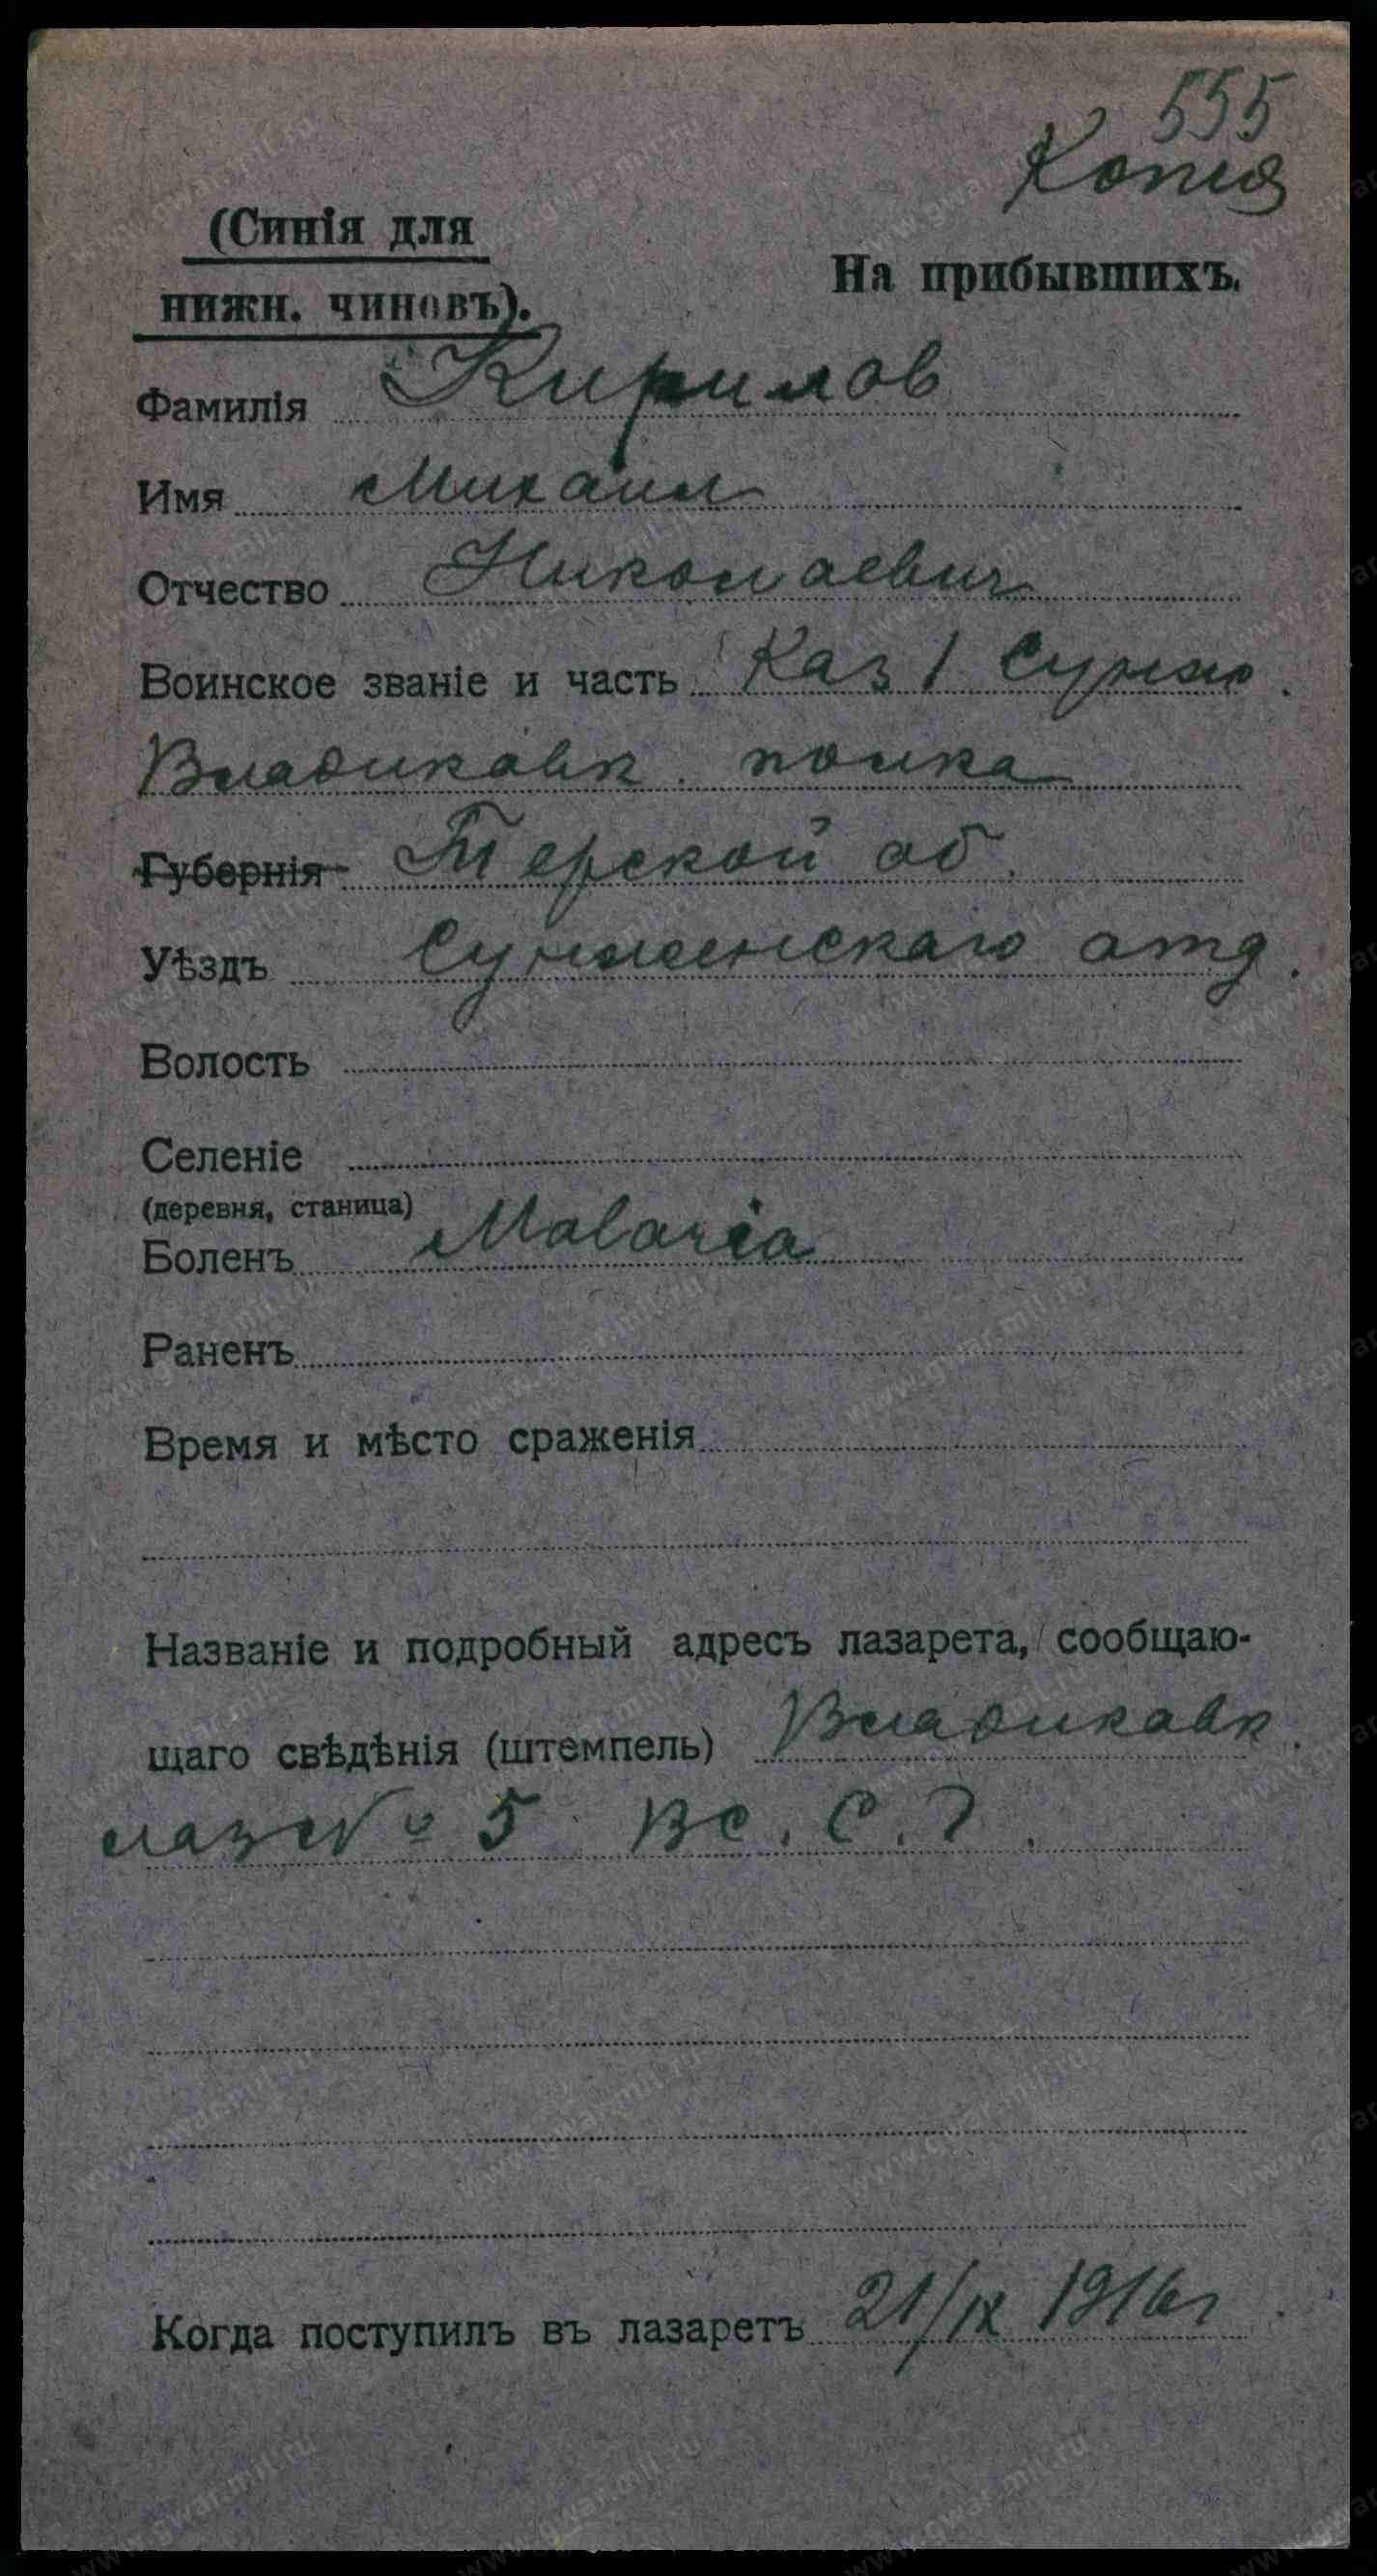 555
Копия
(Синія для
нижн. чиновъ).
На прибывшихъ.
Фамилія Кирилов
Имя Михаил
Отчество Николаевич
Воинское званіе и часть Каз 1 Сунж.
Владикавк. полка
Губернія Терской об.
Уѣздъ Сунженскаго отд.
Волость
Селеніе
(деревня, станица)
Боленъ Malaria
Раненъ
Время и мѣсто сраженія
Названіе и подробный адресъ лазарета, сообщаю-
щаго свѣдѣнія (штемпель) Владикавк.
лаз № 5 Вс. С. Г.
Когда поступилъ въ лазаретъ 21/IX 1916 г